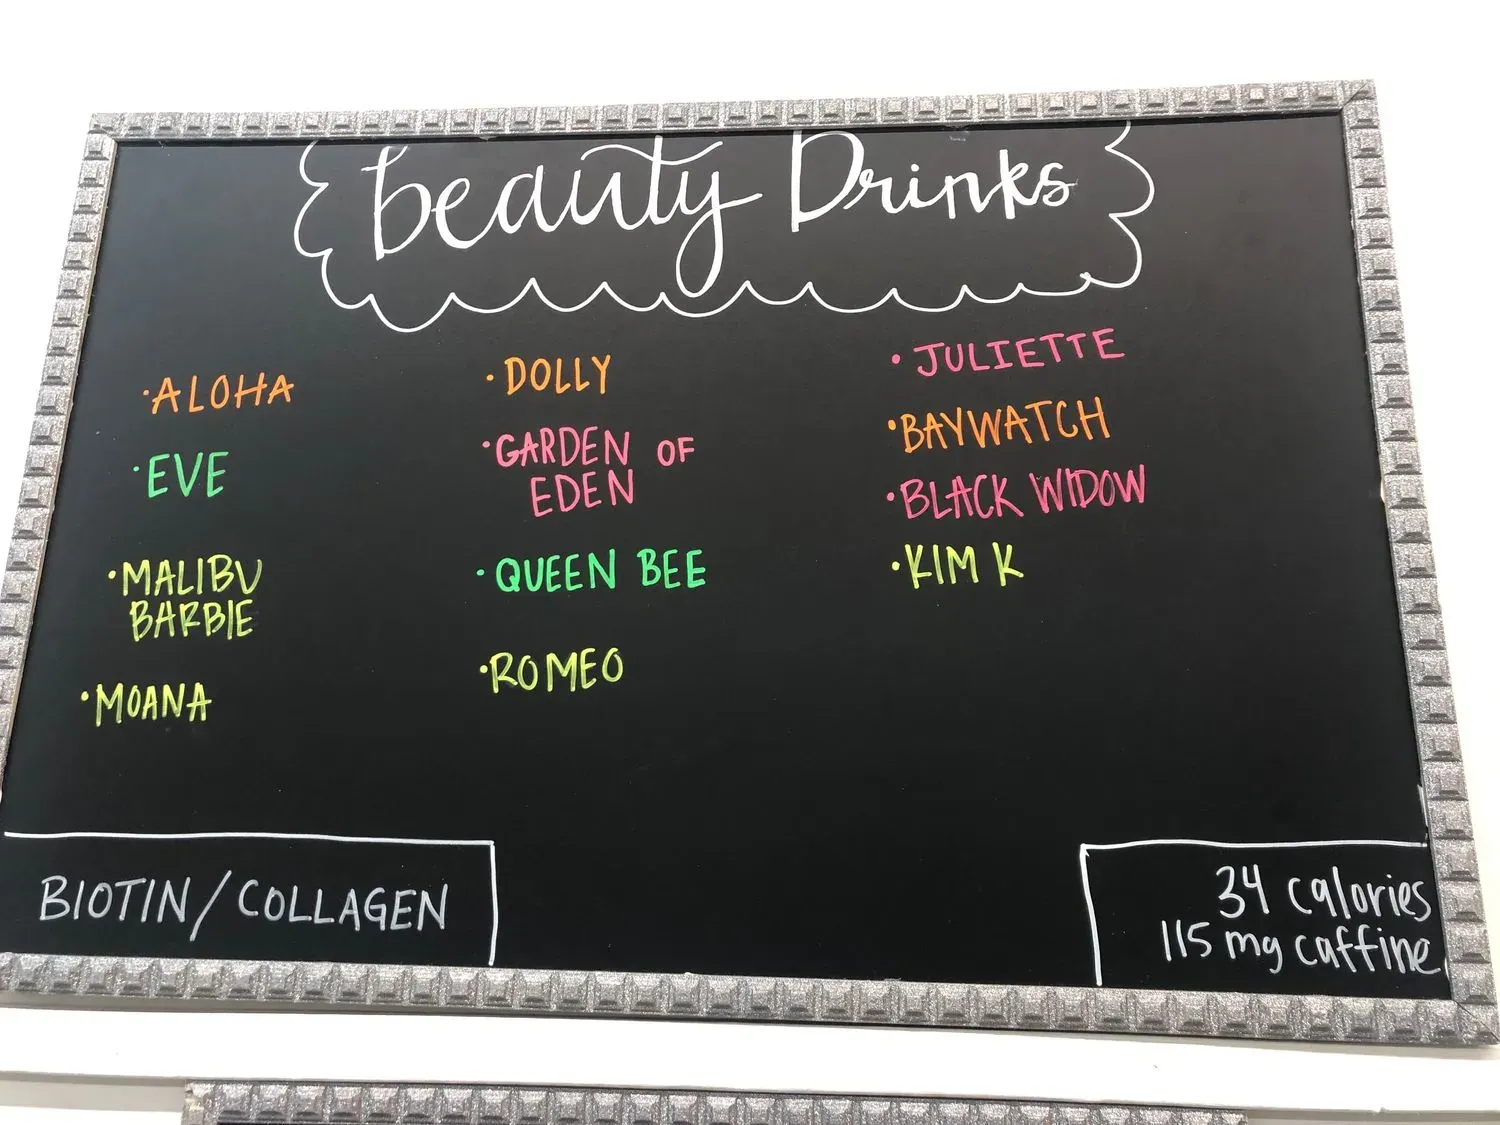 beauty Drinks
·ALOHA
·EVE
·MALIBU
BARBIE
·MOANA
·DOLLY
·GARDEN OF
EDEN
·QUEEN BEE
·ROMEO
·JULIETTE
·BAYWATCH
·BLACK WIDOW
·KIM K
BIOTIN/COLLAGEN
34 calories
115 mg caffine